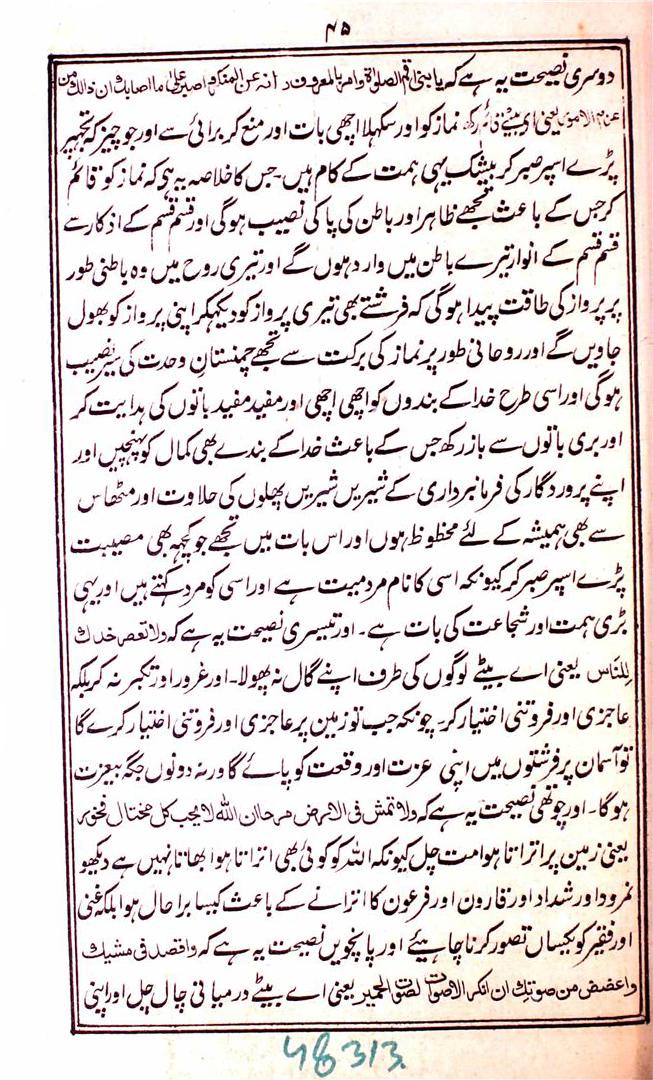 ۴۵
دوسری نصیحت یہ ہے کہ یا بنی اقم الصلواة وامر بالمعروف و انه عن المنکر و اصبر علیٰ ما اصابک و ان ذالك من
عزم الامور یعنی ای بیٹے قائم رکھ نماز کو اور سکہلا اچھی بات اور منع کر برائی سے اور جو چیز کہ تجہپر
پڑے اسپر صبر کر بیشک یہی ہمت کے کام ہیں۔ جس کا خلاصہ یہ ہی کہ نماز کو قائم
کر جس کے باعث تجھے ظاہر اور باطن کی پاکی نصیب ہوگی اور قسم قسم کے اذکار سے
قسم قسم کے انوار تیرے باطن میں وارد ہوں گے اور تیری روح میں وہ باطنی طور
پر پرواز کی طاقت پیدا ہوگی کہ فرشتے بھی تیری پرواز کو دیکہکر اپنی پرواز کو بھول
جاویں گے اور روحانی طور پر نماز کی برکت سے تجھے چمنستانِ وحدت کی سیر نصیب
ہوگی اور اسی طرح خدا کے بندوں کو اچھی اچھی اور مفید مفید باتوں کی ہدایت کر
اور بری باتوں سے باز رکھ جس کے باعث خدا کے بندے بھی کمال کو پہنچیں اور
اپنے پروردگار کی فرمانبرداری کے شیریں شیریں پھلوں کی حلاوت اور مٹھاس
سے بھی ہمیشہ کے لئے محظوظ ہوں اور اس بات میں تجھے جو کچہہ بھی مصیبت
پڑے اسپر صبر کر کیونکہ اسی کا نام مردمیت ہے اور اسی کو مرد کہتے ہیں اور یہی
بڑی ہمت اور شجاعت کی بات ہے۔ اور تیسری نصیحت یہ ہے کہ ولا تصعر خدك
للناس یعنی اے بیٹے لوگوں کی طرف اپنے گال نہ پھولا۔ اور غرور اور تکبر نہ کر بلکہ
عاجزی اور فروتنی اختیار کر۔ چونکہ جب تو زمین پر عاجزی اور فروتنی اختیار کرے گا
تو آسمان پر فرشتوں میں اپنی عزت اور وقعت کو پائے گا ورنہ دونوں جگہ بیعزت
ہوگا۔ اور چوتھی نصیحت یہ ہے کہ ولا تمش فی الارض مرحا ان اللہ لا یحب کل مختال فخور
یعنی زمین پر اتراتا ہوا مت چل کیونکہ اللہ کو کوئی بھی اتراتا ہوا بھاتا نہیں ہے دیکھو
نمرود اور شداد اور قارون اور فرعون کا اترانے کے باعث کیسا برا حال ہوا بلکہ غنی
اور فقیر کو یکساں تصور کرنا چاہیئے اور پانچویں نصیحت یہ ہے کہ واقصد فی مشیك
واغضض من صوتك ان انکر الاصوات لصوت الحمیر یعنی اے بیٹے درمیانی چال چل اور اپنی
48313